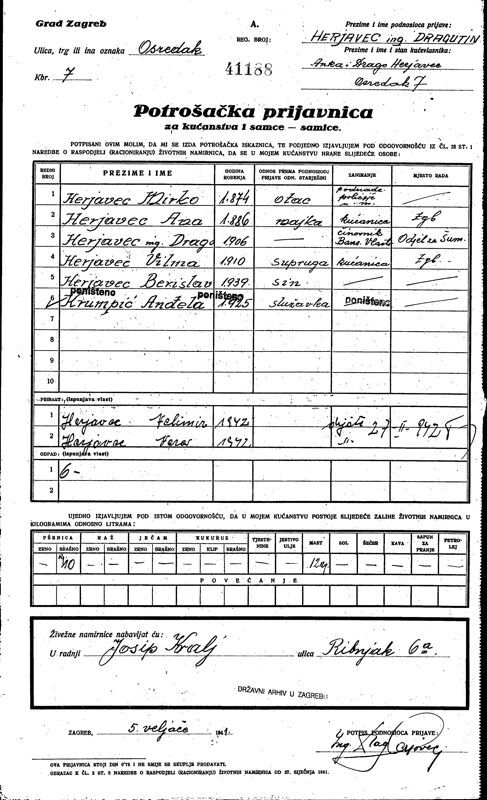 Grad Zagreb
A.
Prezime i ime podnosioca prijave:
HERJAVEC ing. DRAGUTIN
Ulica, trg ili ina oznaka Osredak
REG. BROJ:
Prezime i ime i stan kućevlasnika:
41188
Anka i Drago Herjavec
Kbr. 7
Osredak 7
Potrošačka prijavnica
za kućanstva i samce — samice.
POTPISANI OVIM MOLIM, DA MI SE IZDA POTROŠAČKA ISKAZNICA, TE PODJEDNO IZJAVLJUJEM POD ODGOVORNOŠĆU IZ ČL. 18 ST. 1
NAREDBE O RASPODJELI (RACIONIRANJU) ŽIVOTNIH NAMIRNICA, DA SE U MOJEM KUĆANSTVU HRANE SLIJEDEĆE OSOBE:
REDNI BROJ PREZIME I IME GODINA ROĐENJA ODNOS PREMA PODNOSIOCU PRIJAVE ODN. STARJEŠINI ZANIMANJE MJESTO RADA
1 Herjavec Mirko 1.874 otac —
2 Herjavec Ana 1.886 majka kućanica Zgb
3 Herjavec ing. Drago 1906 — činovnik Bans. Vlasti Odjel za Šum.
4 Herjavec Vilma 1910 supruga kućanica Zgb.
5 Herjavec Berislav 1939 sin — —
6 Krumpić Anđela 1925 služavka poništeno —
poništeno poništeno
7
8
9
10
PRIRAST: (ispunjava vlast)
1 Herjavec Velimir 1942 27-II-942
2 Herjavec Vera 1942 II
ODPAD: (ispunjava vlast)
1 6-
2
UJEDNO IZJAVLJUJEM POD ISTOM ODGOVORNOŠĆU, DA U MOJEM KUĆANSTVU POSTOJE SLIJEDEĆE ZALIHE ŽIVOTNIH NAMIRNICA U
KILOGRAMIMA ODNOSNO LITRAMA:
PŠENICA RAŽ JEČAM KUKURUZ TJESTENINE JESTIVO ULJE MAST SOL ŠEĆER KAVA SAPUN ZA PRANJE PETROLEJ
ZRNO BRAŠNO ZRNO BRAŠNO ZRNO BRAŠNO ZRNO KLIP BRAŠNO
— 10 — — — — — — — — — 12 — — — — —
POVEĆANJE
Živežne namirnice nabavljat ću:
U radnji Josip Kralj ulica Ribnjak 6a.
DRŽAVNI ARHIV U ZAGREBU
ZAGREB, 5. veljače 1941.
POTPIS PODNOSIOCA PRIJAVE:
OVA PRIJAVNICA STOJI DIN 0'75 I NE SMIJE SE SKUPLJE PRODAVATI.
OBRAZAC K ČL. 2 ST. 3 NAREDBE O RASPODJELI (RACIONIRANJU) ŽIVOTNIH NAMIRNICA OD 27. SIJEČNJA 1941.